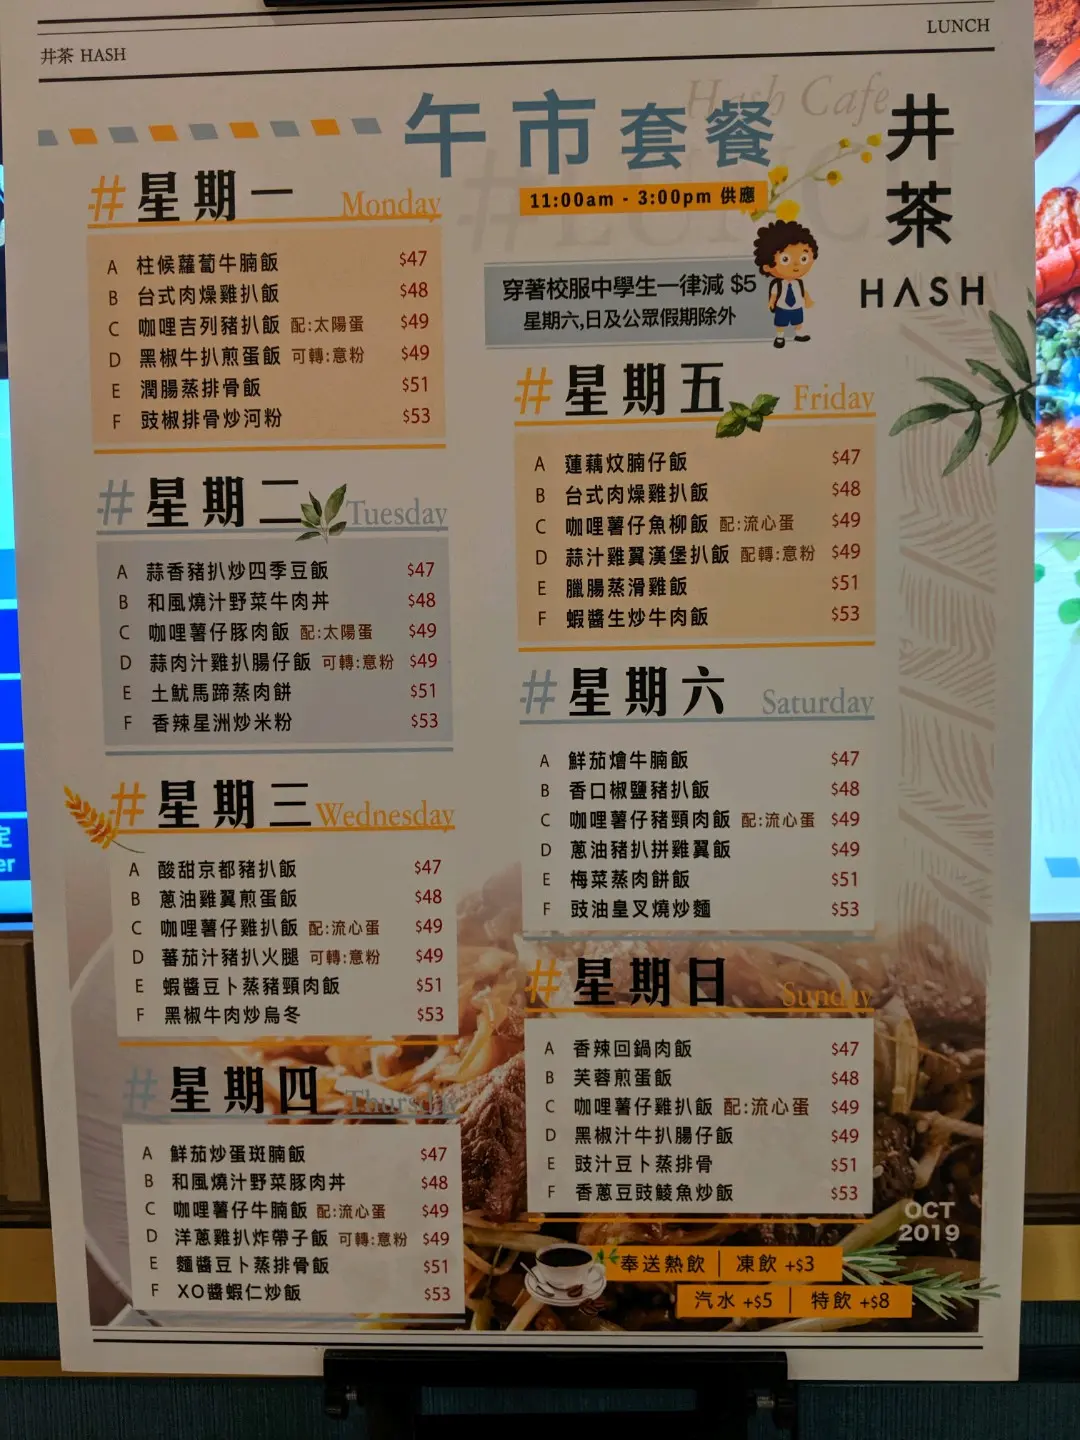 井茶 HASH
LUNCH
Hash Cafe
午市套餐
11:00am - 3:00pm 供應
井茶
HASH
穿著校服中學生一律減 $5
星期六,日及公眾假期除外
#星期一 Monday
A 柱候蘿蔔牛腩飯 $47
B 台式肉燥雞扒飯 $48
C 咖哩吉列豬扒飯 配:太陽蛋 $49
D 黑椒牛扒煎蛋飯 可轉:意粉 $49
E 潤腸蒸排骨飯 $51
F 豉椒排骨炒河粉 $53
#星期二 Tuesday
A 蒜香豬扒炒四季豆飯 $47
B 和風燒汁野菜牛肉丼 $48
C 咖哩薯仔豚肉飯 配:太陽蛋 $49
D 蒜肉汁雞扒腸仔飯 可轉:意粉 $49
E 土魷馬蹄蒸肉餅 $51
F 香辣星洲炒米粉 $53
#星期三 Wednesday
A 酸甜京都豬扒飯 $47
B 蔥油雞翼煎蛋飯 $48
C 咖哩薯仔雞扒飯 配:流心蛋 $49
D 蕃茄汁豬扒火腿 可轉:意粉 $49
E 蝦醬豆卜蒸豬頸肉飯 $51
F 黑椒牛肉炒烏冬 $53
#星期四 Thursday
A 鮮茄炒蛋斑腩飯 $47
B 和風燒汁野菜豚肉丼 $48
C 咖哩薯仔牛腩飯 配:流心蛋 $49
D 洋蔥雞扒炸帶子飯 可轉:意粉 $49
E 麵醬豆卜蒸排骨飯 $51
F XO醬蝦仁炒飯 $53
#星期五 Friday
A 蓮藕炆腩仔飯 $47
B 台式肉燥雞扒飯 $48
C 咖哩薯仔魚柳飯 配:流心蛋 $49
D 蒜汁雞翼漢堡扒飯 配轉:意粉 $49
E 臘腸蒸滑雞飯 $51
F 蝦醬生炒牛肉飯 $53
#星期六 Saturday
A 鮮茄燴牛腩飯 $47
B 香口椒鹽豬扒飯 $48
C 咖哩薯仔豬頸肉飯 配:流心蛋 $49
D 蔥油豬扒拼雞翼飯 $49
E 梅菜蒸肉餅飯 $51
F 豉油皇叉燒炒麵 $53
#星期日 Sunday
A 香辣回鍋肉飯 $47
B 芙蓉煎蛋飯 $48
C 咖哩薯仔雞扒飯 配:流心蛋 $49
D 黑椒汁牛扒腸仔飯 $49
E 豉汁豆卜蒸排骨 $51
F 香蔥豆豉鯪魚炒飯 $53
OCT
2019
奉送熱飲 | 凍飲 +$3
汽水 +$5 | 特飲 +$8